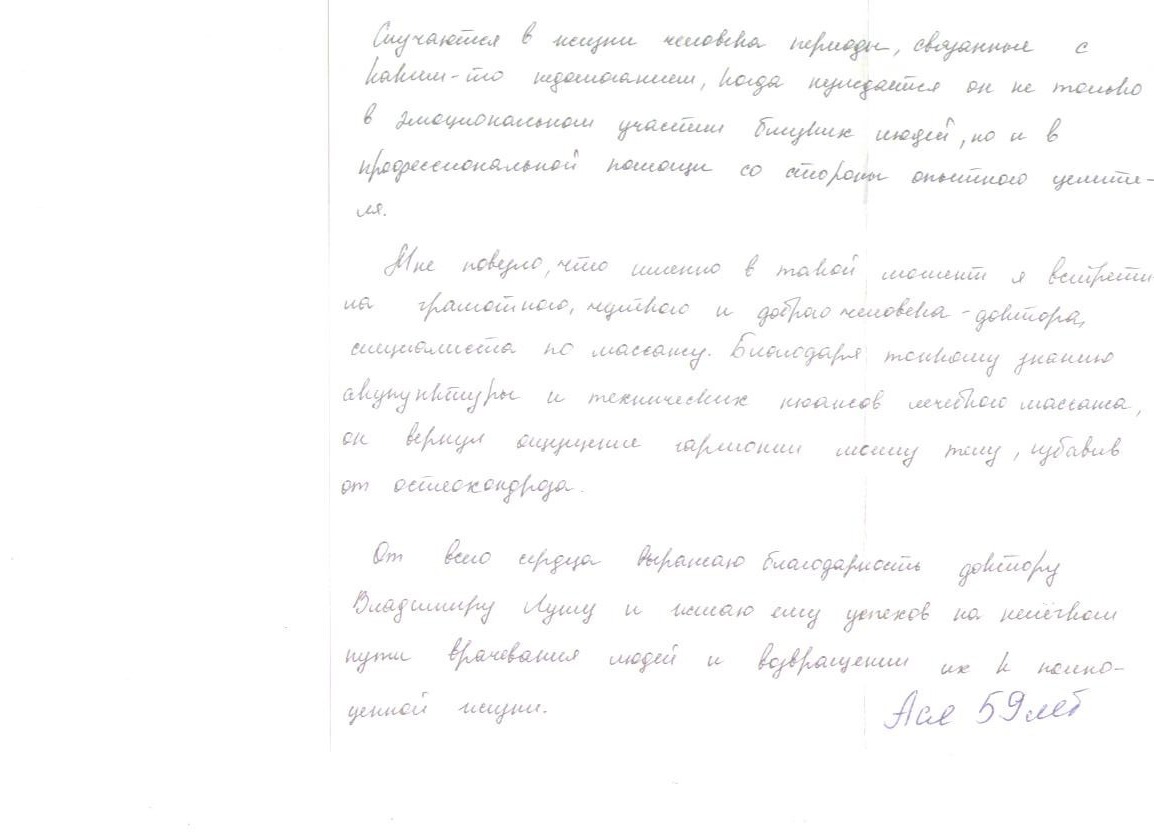 Случаются в жизни человека периоды, связанные с
каким-то недомоганием, когда нуждается он не только
в эмоциональном участии близких людей, но и в
профессиональной помощи со стороны опытного целите-
ля.
Мне повезло, что именно в такой момент я встрети
ла грамотного, чуткого и доброго человека-доктора,
специалиста по массажу. Благодаря тонкому знанию
акупунктуры и технических нюансов лечебного массажа,
он вернул ощущение гармонии моему телу, избавив
от остеохондроза.
От всего сердца выражаю благодарность доктору
Владимиру Лущу и желаю ему успехов на нелёгком
пути врачевания людей и возвращении их к полно-
ценной жизни.
Ася 59 лет